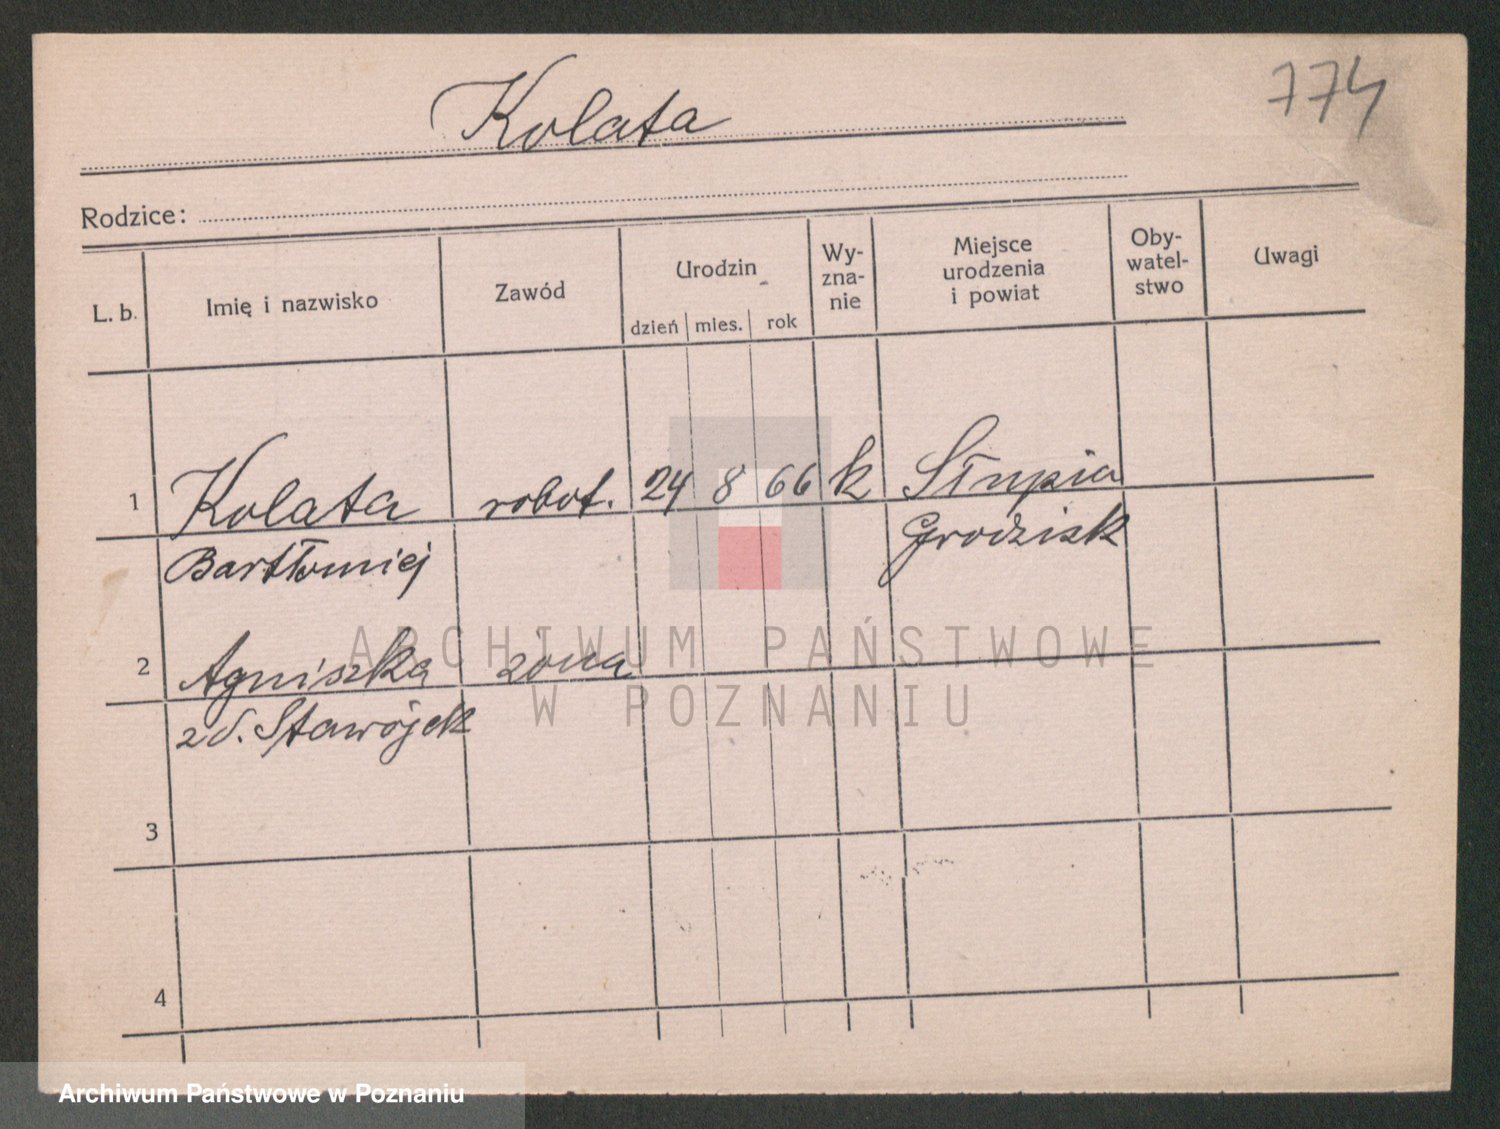 Kolata
774
Rodzice:
L. b.
Imię i nazwisko
Zawód
Urodzin
dzień mies. rok
Wy-
zna-
nie
Miejsce
urodzenia
i powiat
Oby-
watel-
stwo
Uwagi
1 Kolata robot. 24 8 66 k Słupia
Bartłomiej Grodzisk
2 Agniszka żona
zd. Stawójek
3
4
ARCHIWUM PAŃSTWOWE
W POZNANIU
Archiwum Państwowe w Poznaniu